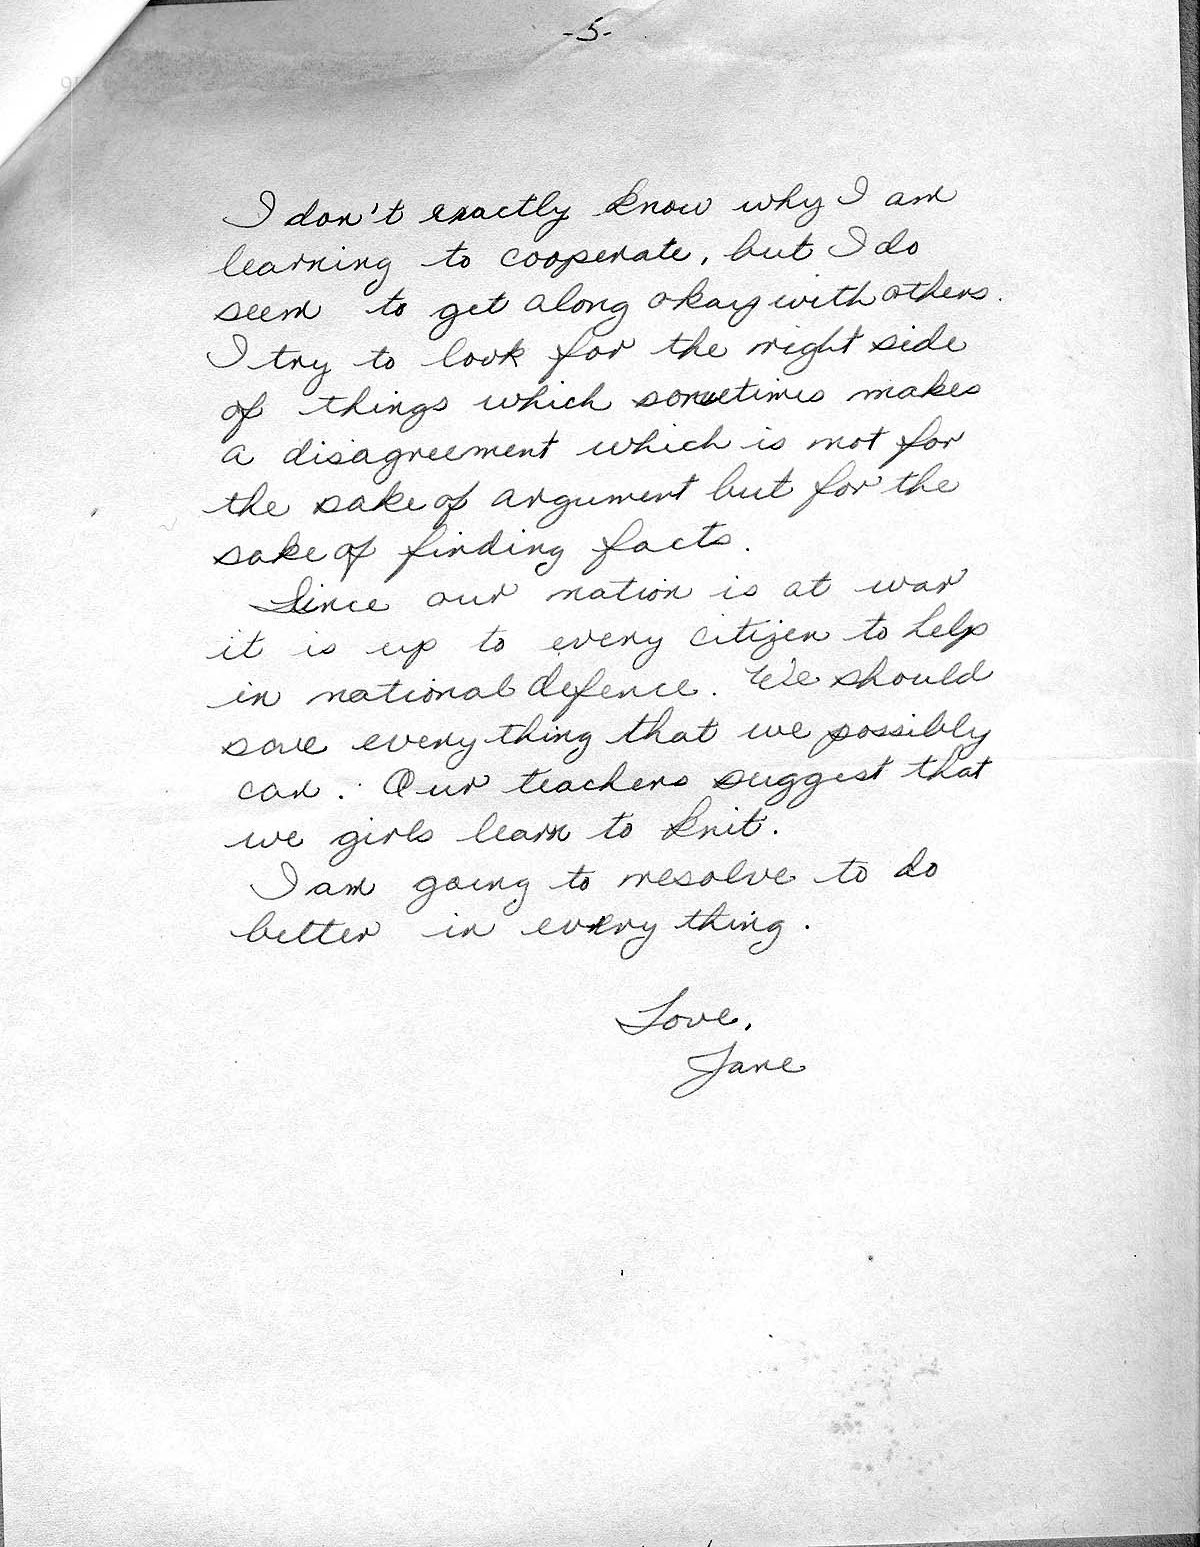 -5-
I don't exactly know why I am
learning to cooperate, but I do
seem to get along okay with others.
I try to look for the right side
of things which sometimes makes
a disagreement which is not for
the sake of argument but for the
sake of finding facts.
Since our nation is at war
it is up to every citizen to help
in national defence. We should
save everything that we possibly
can. Our teachers suggest that
we girls learn to knit.
I am going to resolve to do
better in every thing.
Love,
Jane